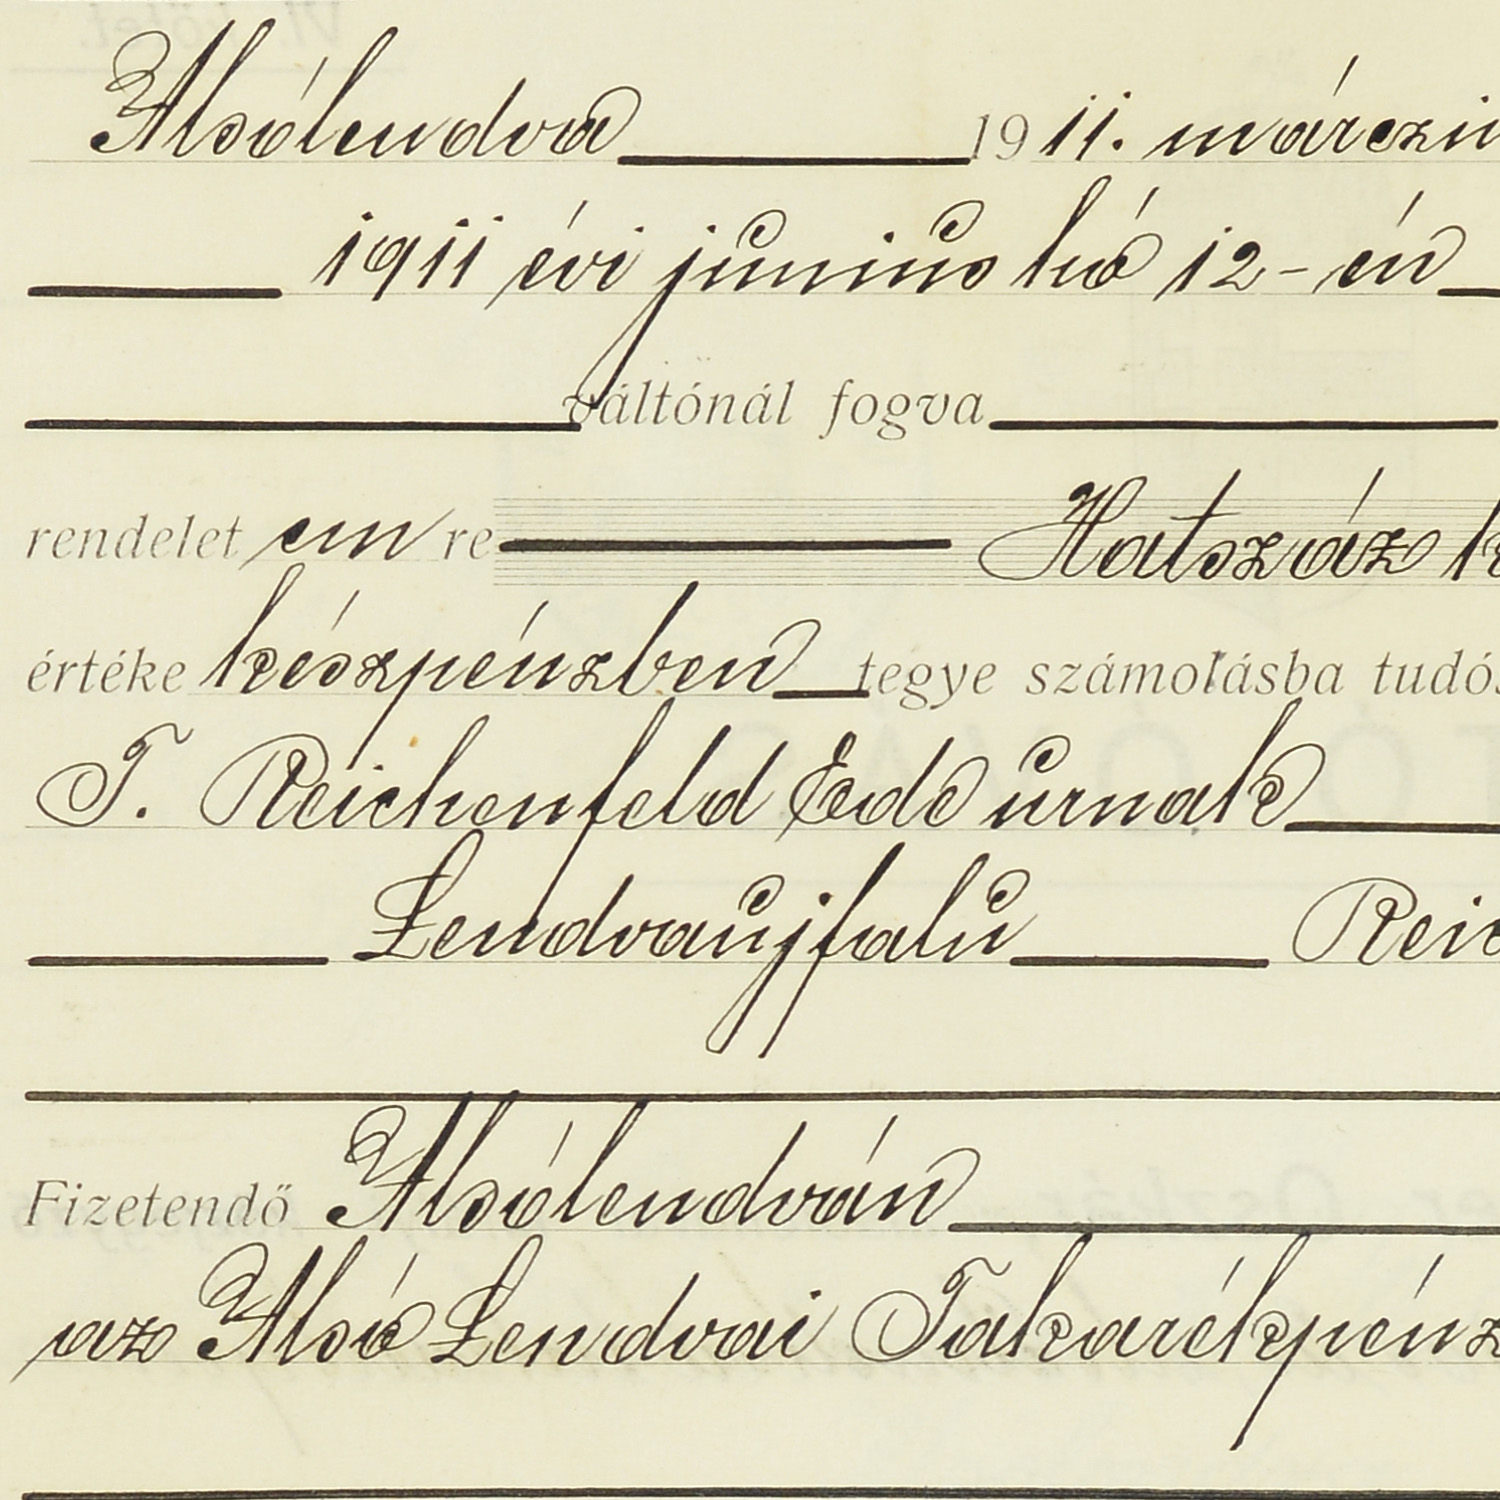 Alsólendva 19 11. márczi
1911 évi junius hó 12-én
váltónál fogva
rendelet em re Hatszáz k
értéke készpénzben tegye számolásba tudós
T. Reichenfeld Ede urnak
Lendvaujfalu Reic
Fizetendő Alsólendván
az Alsó Lendvai Takarékpénz